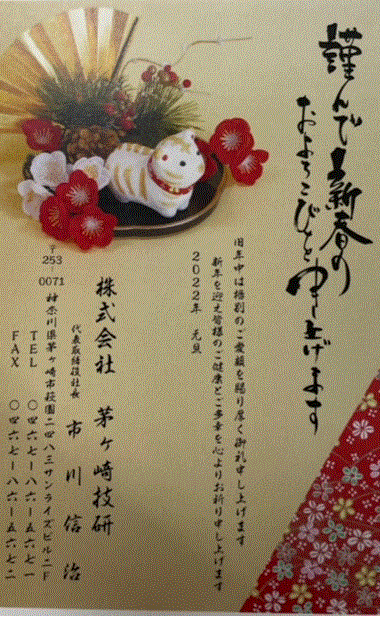 謹んで新春の
およろこびを申し上げます
旧年中は格別のご愛顧を賜り厚く御礼申し上げます
新年を迎え皆様のご健康とご多幸を心よりお祈り申し上げます
2022年 元旦
株式会社 茅ヶ崎技研
代表取締役社長 市川信治
〒253-0071 神奈川県茅ヶ崎市萩園二四八三サンライズビル二F
TEL 〇四六七-八六-五六七一
FAX 〇四六七-八六-五六七二